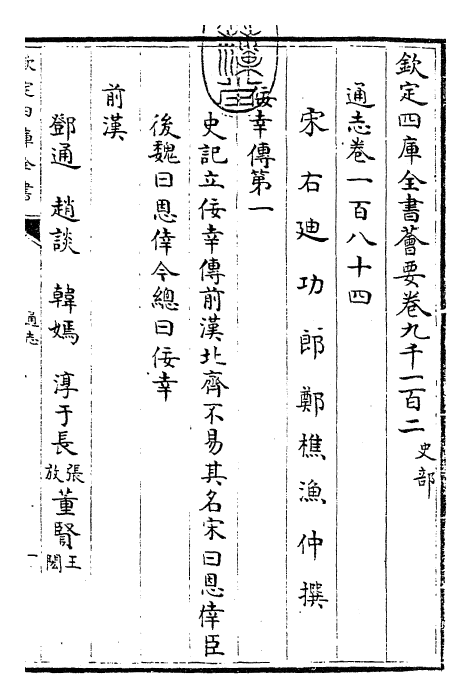 欽定四庫全書薈要卷九千一百二 史部
通志卷一百八十四
宋右迪功郎鄭樵漁仲撰
佞幸傳第一
史記立佞幸傳前漢北齊不易其名宋曰恩倖臣
後魏曰恩倖今總曰佞幸
前漢
鄧通 趙談 韓嫣 淳于長 張放 董賢 王閎
欽定四庫全書
通志
一